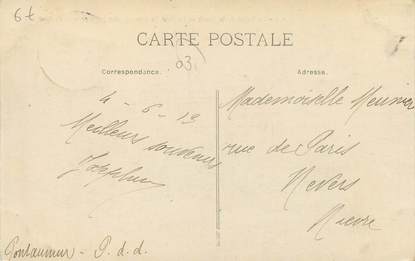 6t
CARTE POSTALE
03.
Correspondance.
Adresse.
4 - 6 - 12
Meilleurs souvenirs
Mademoiselle Meunier
rue de Paris
Nevers
Nièvre
Pontaumur - P. d. d.